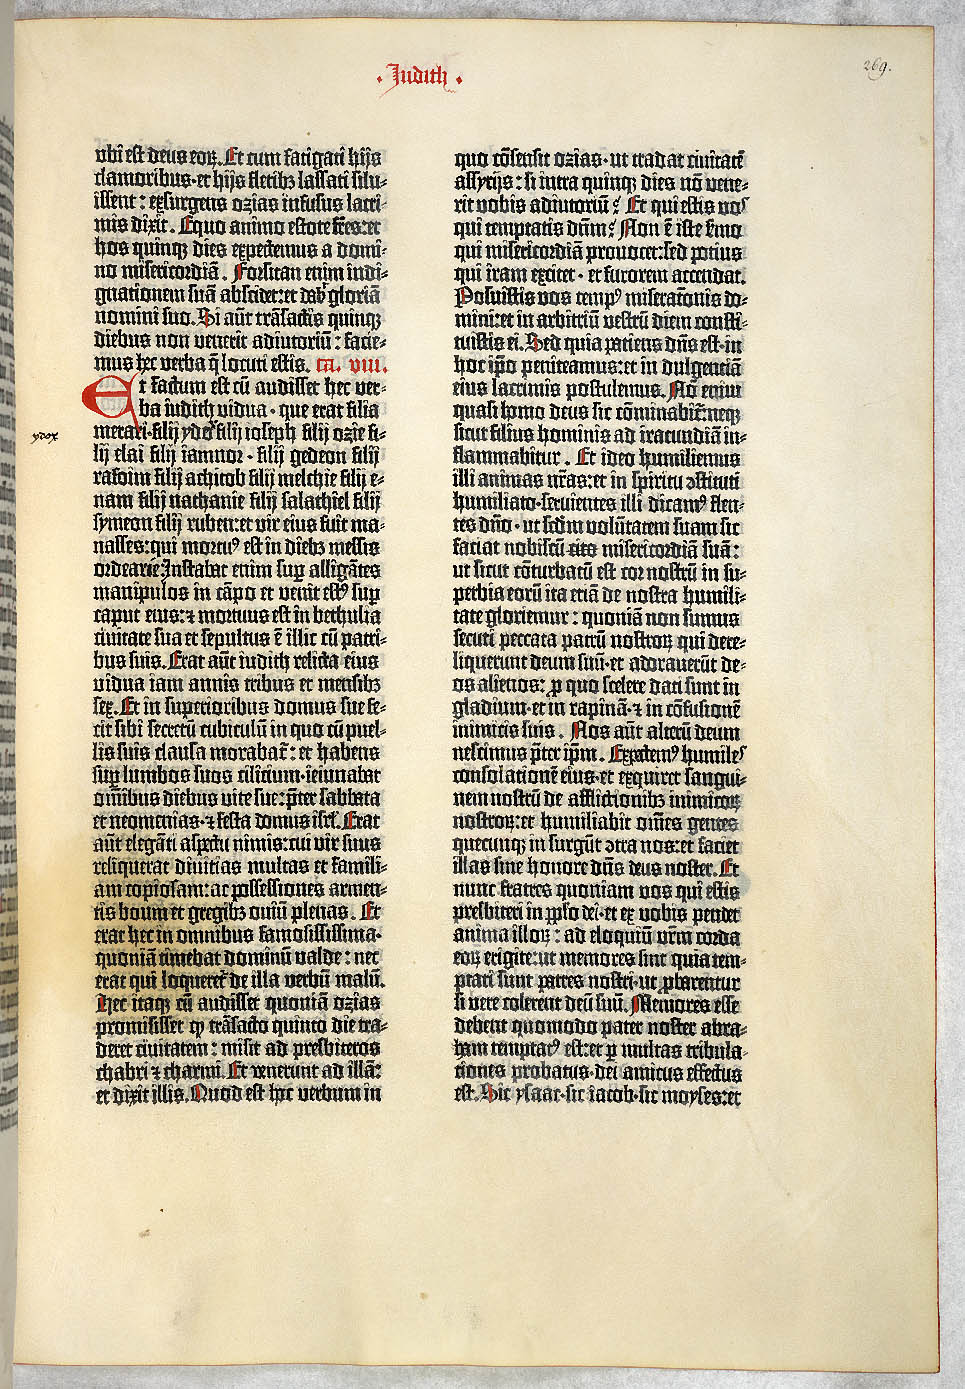 · Iudith ·
269.
vbi est deus eoꝝ. Et cum fatigati hijs
clamoribus·et hijs fletibꝫ lassati silu-
issent: exsurgens ozias infusus lacri-
mis dixit. Equo animo estote fr̄es: et
hos quinqꝫ dies expectemus a domi-
no misericordiā. Forsitan enim indi-
gnationem suā abscidet: et dabit gloriā
nomini suo. Si aūt trāsactis quinqꝫ
diebus non venerit adiutoriū: facie-
mus hec verba q̄ locuti estis. ca. VIII.
Et factum est cū audisset hec ver-
ba iudith vidua· que erat filia
merari·filij ydox filij ioseph filij ozie fi-
ydox
lij elai filij iamnor· filij gedeon filij
rafoim filij achitob filij melchie filij e-
nam filij nathanie filij salathiel filij
symeon filij ruben: et vir eius fuit ma-
nasses: qui mortuꝰ est in diebꝫ messis
ordearie. Instabat enim sup̲ alligātes
manipulos in cāpo et venit estꝰ sup̲
caput eius: ⁊ mortuus est in bethulia
civitate sua et sepultus ē illic cū patri-
bus suis. Erat aūt iudith relicta eius
vidua iam annis tribus et mensibꝫ
sex. Et in superioribus domus sue fe-
cit sibi secretū cubiculū in quo cū puel-
lis suis clausa morabat᷑: et habens
sup̲ lumbos suos cilicium·ieiunabat
om̄ibus diebus vite sue: p̄ter sabbata
et neomenias·⁊ festa domus isrl̄. Erat
aūt eleganti aspectu nimis: cui vir suus
reliquerat divitias multas et famili-
am copiosam: ac possessiones armen-
tis boum et gregibꝫ oviū plenas. Et
erat hec in omnibus famosissima·
quoniā timebat dominū valde: nec
erat qui loqueret᷑ de illa verbū malū.
Hec itaqꝫ cū audisset quoniā ozias
promisisset ꝙ trāsacto quinto die tra-
deret civitatem: misit ad presbiteros
chabri ⁊ charmi. Et venerunt ad illā:
et dixit illis. Quod est hoc verbum in
quo cōsensit ozias· ut tradat civitatē
assyrijs: si intra quinqꝫ dies nō vene-
rit vobis adiutoriū? Et qui estis vos
qui temptatis dn̄m? Non ē iste s̄mo
qui misericordiā provocet: sed potius
qui iram excitet· et furorem accendat.
Posuistis vos tempꝰ miseratōnis do-
mini: et in arbitriū vestrū diem consti-
tuistis ei. Sed quia patiens dn̄s est·in
hoc ip̄o peniteamus: et in dulgentiā
eius lacrimis postulemus. Nō enim
quasi homo deus sic cōminabit᷑: neqꝫ
sicut filius hominis ad iracundiā in-
flammabitur. Et ideo humiliemus
illi animas nr̄as: et in spiritu ꝯstituti
humiliato·servientes illi dicamꝰ flen-
tes dn̄o· ut scd̄m volūtatem suam sic
faciat nobiscū cito misericordiā suā:
ut sicut cōturbatū est cor nostrū in su-
perbia eorū ita etiā de nostra humili-
tate gloriemur: quoniā non sumus
secuti peccata patrū nostroꝝ qui dere-
liquerunt deum suū·et adoraverūt de-
os alienos: ꝓ quo scelere dati sunt in
gladium·et in rapinā·⁊ in cōfusionē
inimicis suis. Nos aūt alterū deum
nescimus p̄ter ip̄m. Expectemꝰ humiles
consolationē eius·et exquiret sangui-
nem nostrū de afflictionibꝫ inimicoꝝ
nostroꝝ: et humiliabit om̄es gentes
quecunqꝫ in surgūt ꝯtra nos: et faciet
illas sine honore dn̄s deus noster. Et
nunc fratres quoniam vos qui estis
presbiteri in pp̄lo dei·et ex vobis pendet
anima illoꝝ: ad eloquiū vr̄m corda
eoꝝ erigite: ut memores sint quia tem-
ptati sunt patres nostri·ut ꝓbarentur
si vere colerent deū suū. Memores esse
debent quomodo pater noster abra-
ham temptatꝰ est: et ꝑ multas tribula-
tiones probatus·dei amicus effectus
est. Sic ysaac·sic iacob·sic moyses: et